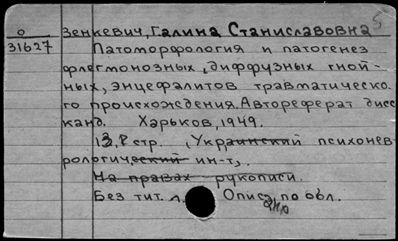 о Зенкевич, Галина Станиславовна 5
31627 Патоморфология и патогенез
флегмонозных, диффузных гной-
ных, энцефалитов травматическо-
го происхождения. Автореферат дисс
канд. Харьков, 1949.
13. с стр. (Украинский психонев-
рологический ин-т).
На правах рукописи.
Без тит. л. Опис. по обл.